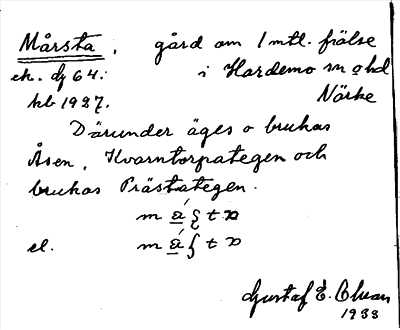 Mårsta, gård om 1 mtl. frälse
ek. bl 64: i Hardemo sn o hd
hb 1927. Närke
Därunder äges o brukas
Åsen, Kvarntorpategen och
brukas Prästategen.
el.
Gustaf E.
1933